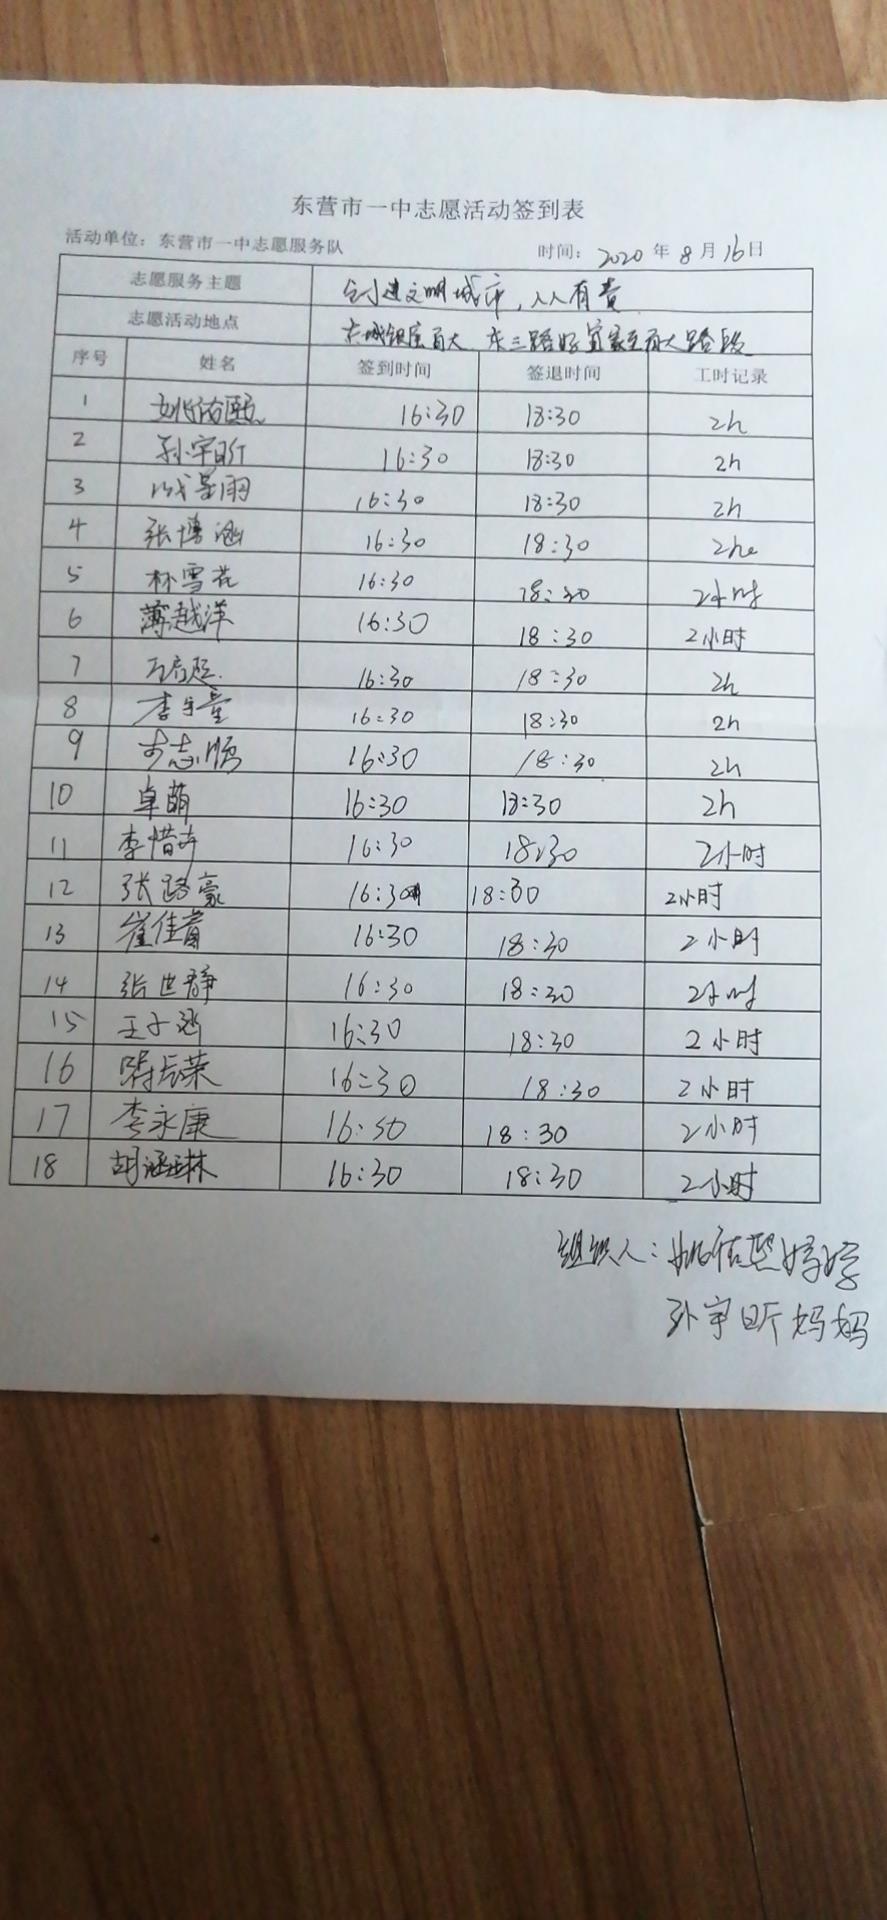 东营市一中志愿活动签到表
活动单位：东营市一中志愿服务队 时间：2020年8月16日
志愿服务主题 创建文明城市，人人有责
志愿活动地点 东城银座百大 东三路好宜家至百大路段
序号 姓名 签到时间 签退时间 工时记录
1 16:30 18:30 2h
2 孙宇昕 16:30 18:30 2h
3 16:30 18:30 2h
4 张博涵 16:30 18:30 2h
5 林雪花 16:30 18:30 2小时
6 薄越洋 16:30 18:30 2小时
7 16:30 18:30 2h
8 李宇童 16:30 18:30 2h
9 志顺 16:30 18:30 2h
10 卓萌 16:30 18:30 2h
11 李惜卉 16:30 18:30 2小时
12 张路豪 16:30 18:30 2小时
13 崔佳音 16:30 18:30 2小时
14 张世静 16:30 18:30 2小时
15 王子涵 16:30 18:30 2小时
16 16:30 18:30 2小时
17 李永康 16:30 18:30 2小时
18 胡涵琳 16:30 18:30 2小时
组织人：姚佑熙妈妈
孙宇昕妈妈